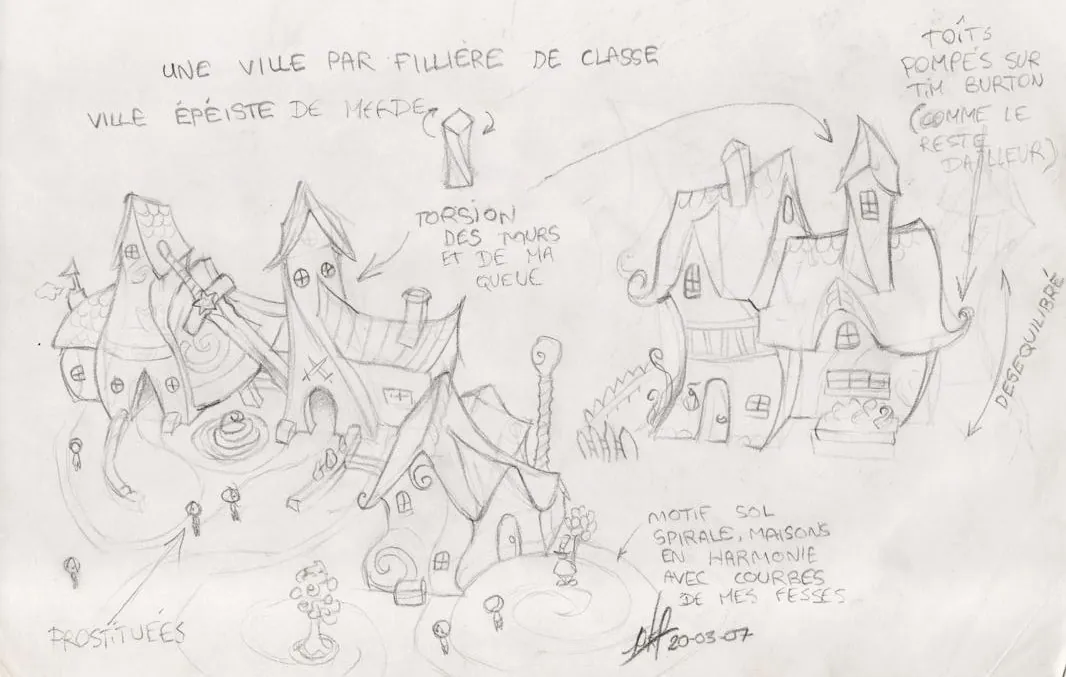 UNE VILLE PAR FILLIÈRE DE CLASSE
VILLE ÉPÉISTE DE MERDE
TORSION
DES MURS
ET DE MA
QUEUE
TOÎTS
POMPÉS SUR
TIM BURTON
(COMME LE
RESTE
DAILLEUR)
DESEQUILIBRÉ
MOTIF SOL
SPIRALE, MAISONS
EN HARMONIE
AVEC COURBES
DE MES FESSES
20-03-07
PROSTITUÉES